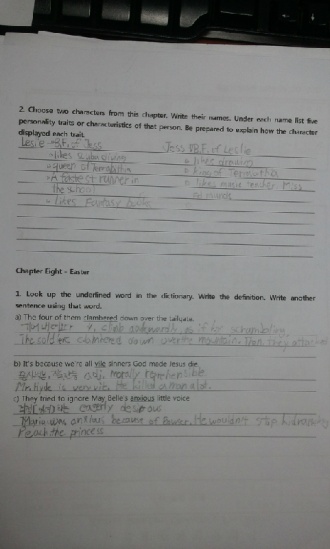 2. Choose two characters from this chapter. Write their names. Under each name list five
personality traits or characteristics of that person. Be prepared to explain how the character
displayed each trait.
Leslie - B.F. of Jess
Jess B.F. of Leslie
likes scuba diving
likes drawing
queen of Terabithia
King of Terabithia
A fastest runner in
the school
likes music teacher Miss
likes
Chapter Eight - Easter
1. Look up the underlined word in the dictionary. Write the definition. Write another
sentence using that word.
a) The four of them clambered down over the tailgate.
The soldiers clambered down over the mountain. Then they attacked
b) It's because we're all vile sinners God made Jesus die.
adj. morally reprehensible
Mr. Hyde is very vile. He killed a man a lot.
c) They tried to ignore May Belle's anxious little voice
eagerly desirous
Mario was anxious because of Bowser. He wouldn't stop kidnapping
Peach the princess